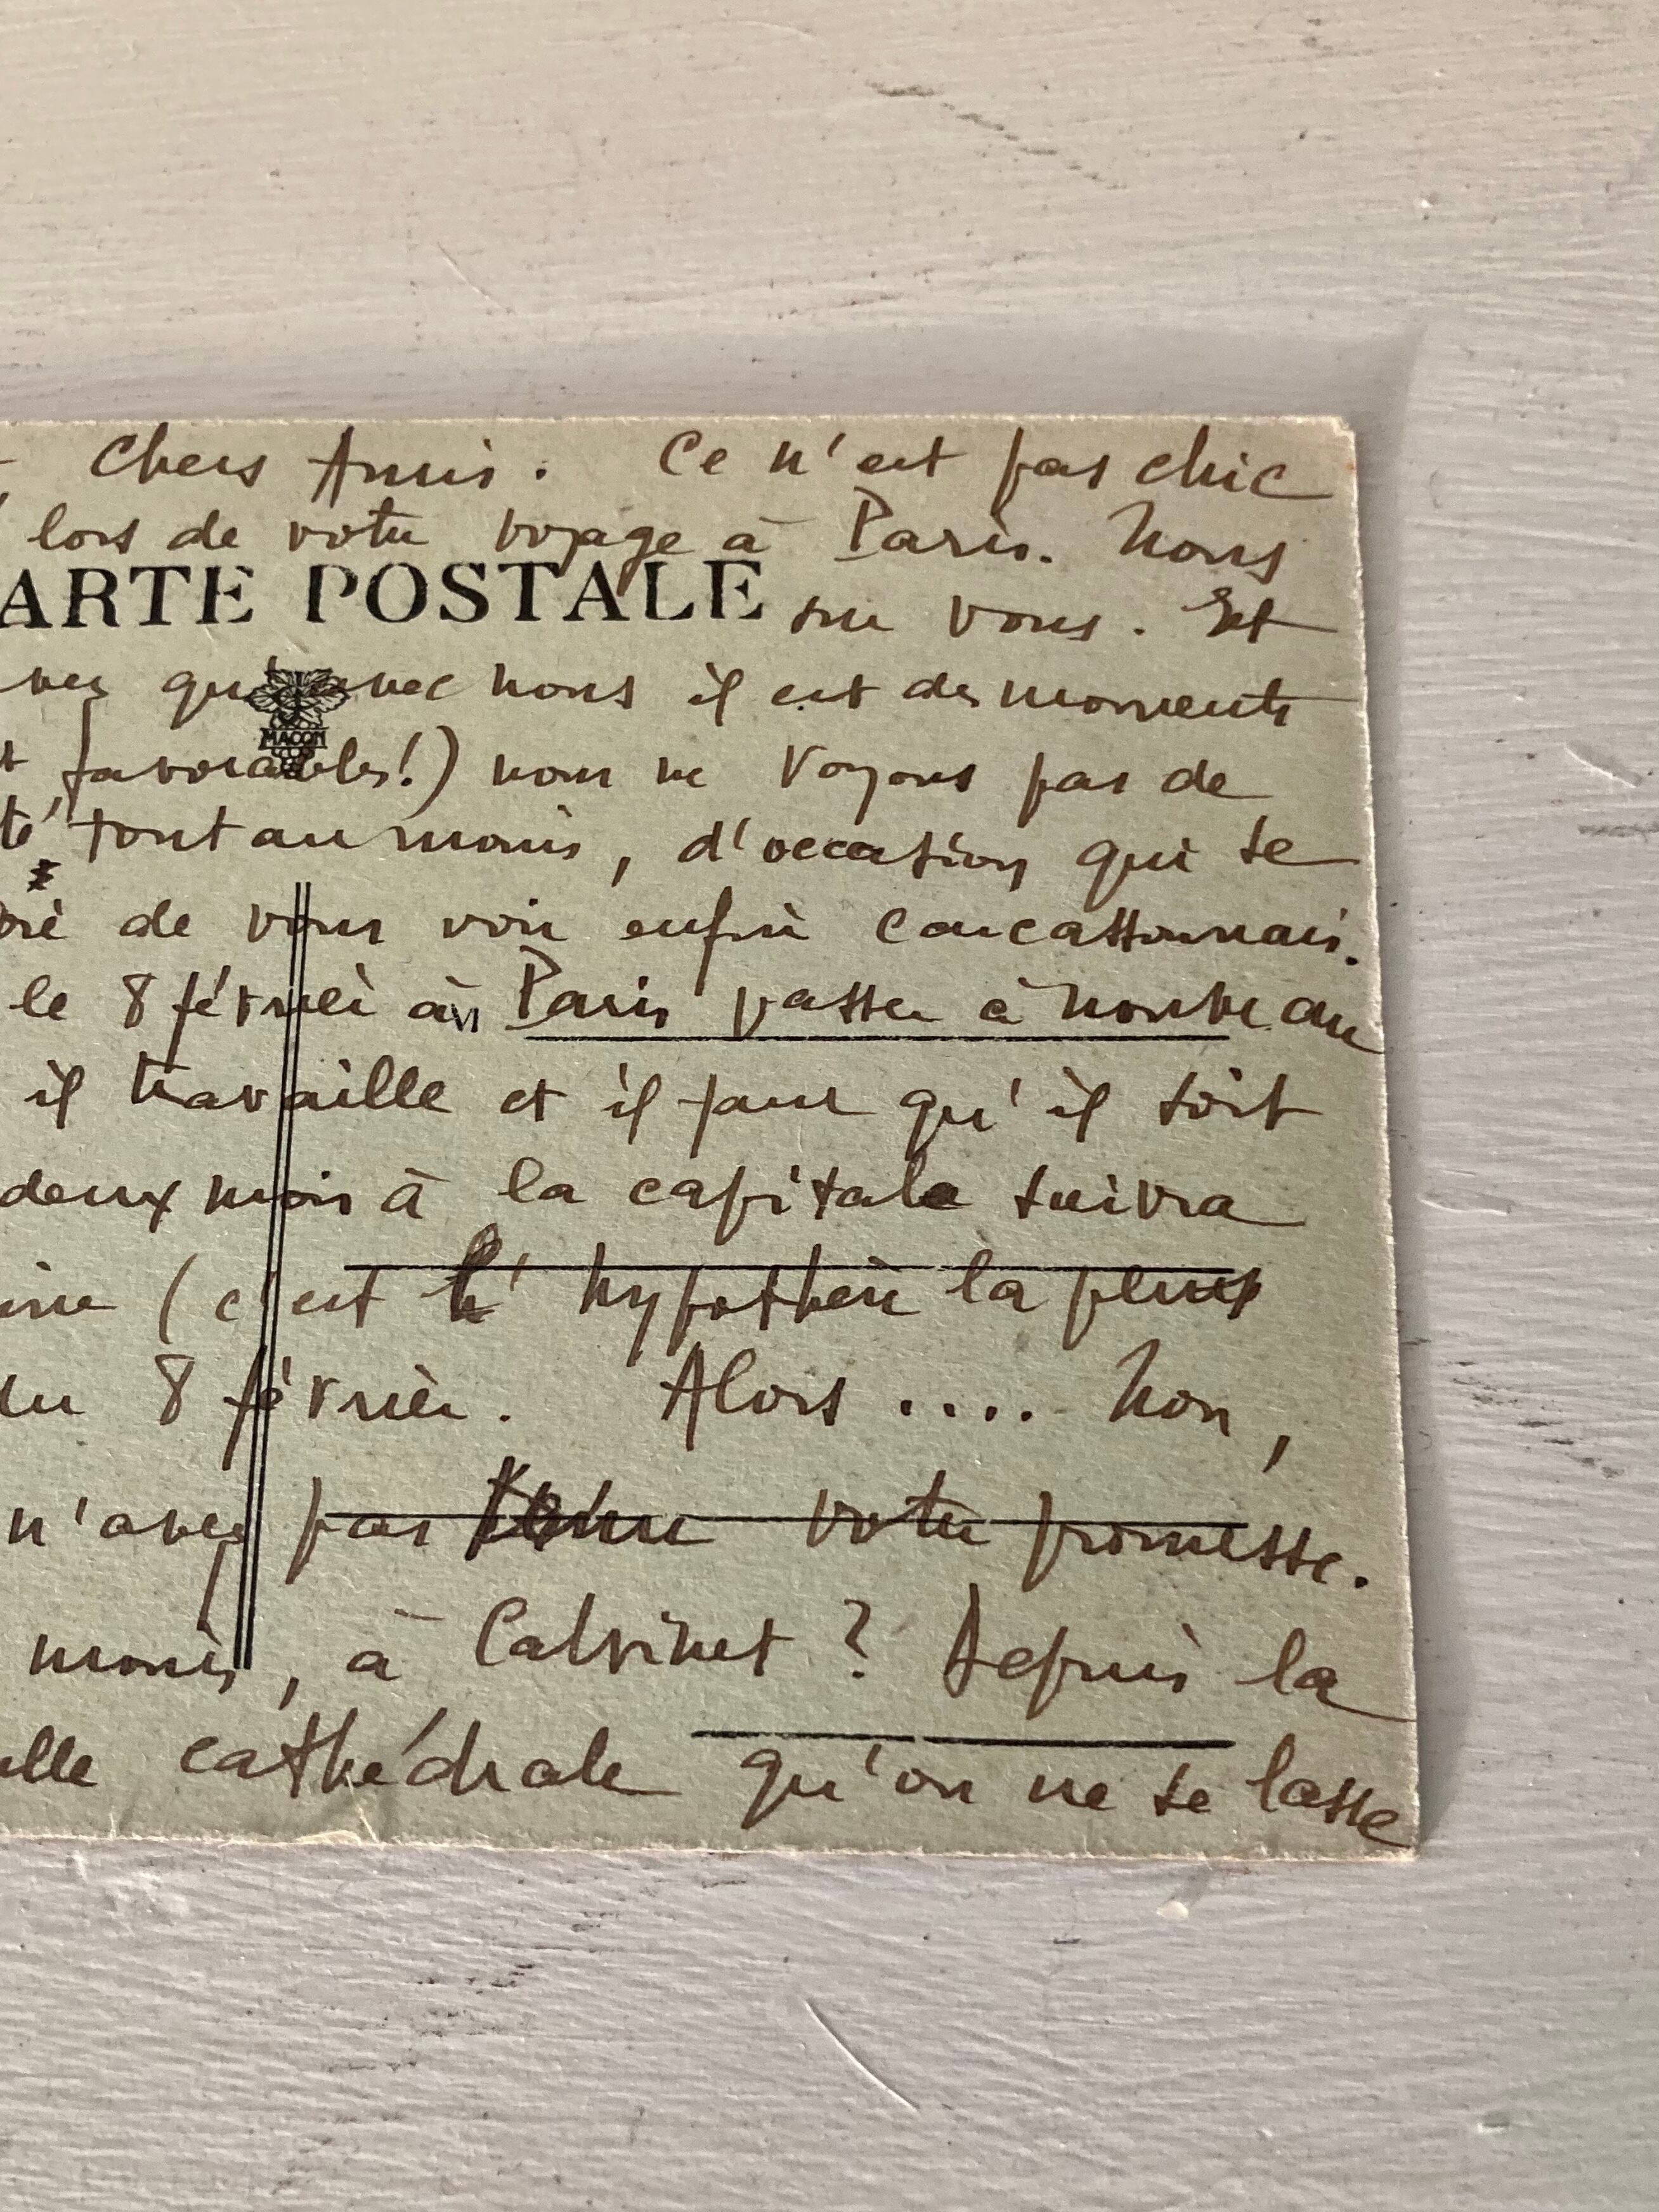 Chers Amis. Ce n'est pas chic
lors de votre voyage à Paris. Nous
ARTE POSTALE sur vous. Et
avec nous il est des moments
MACON
favorables!) nous ne voyons pas de
té tout au moins, d'occasion qui se
de vous voir enfin carcassonnais.
le 8 février à Paris passer à nouveau
il travaille et il faut qu'il soit
deux mois à la capitale suivra
(c'est l'hypothèse la plus
du 8 février. Alors .... Non,
n'avez pas tenu votre promesse.
moins, à Calvinet ? Depuis la
elle cathédrale qu'on ne se lasse